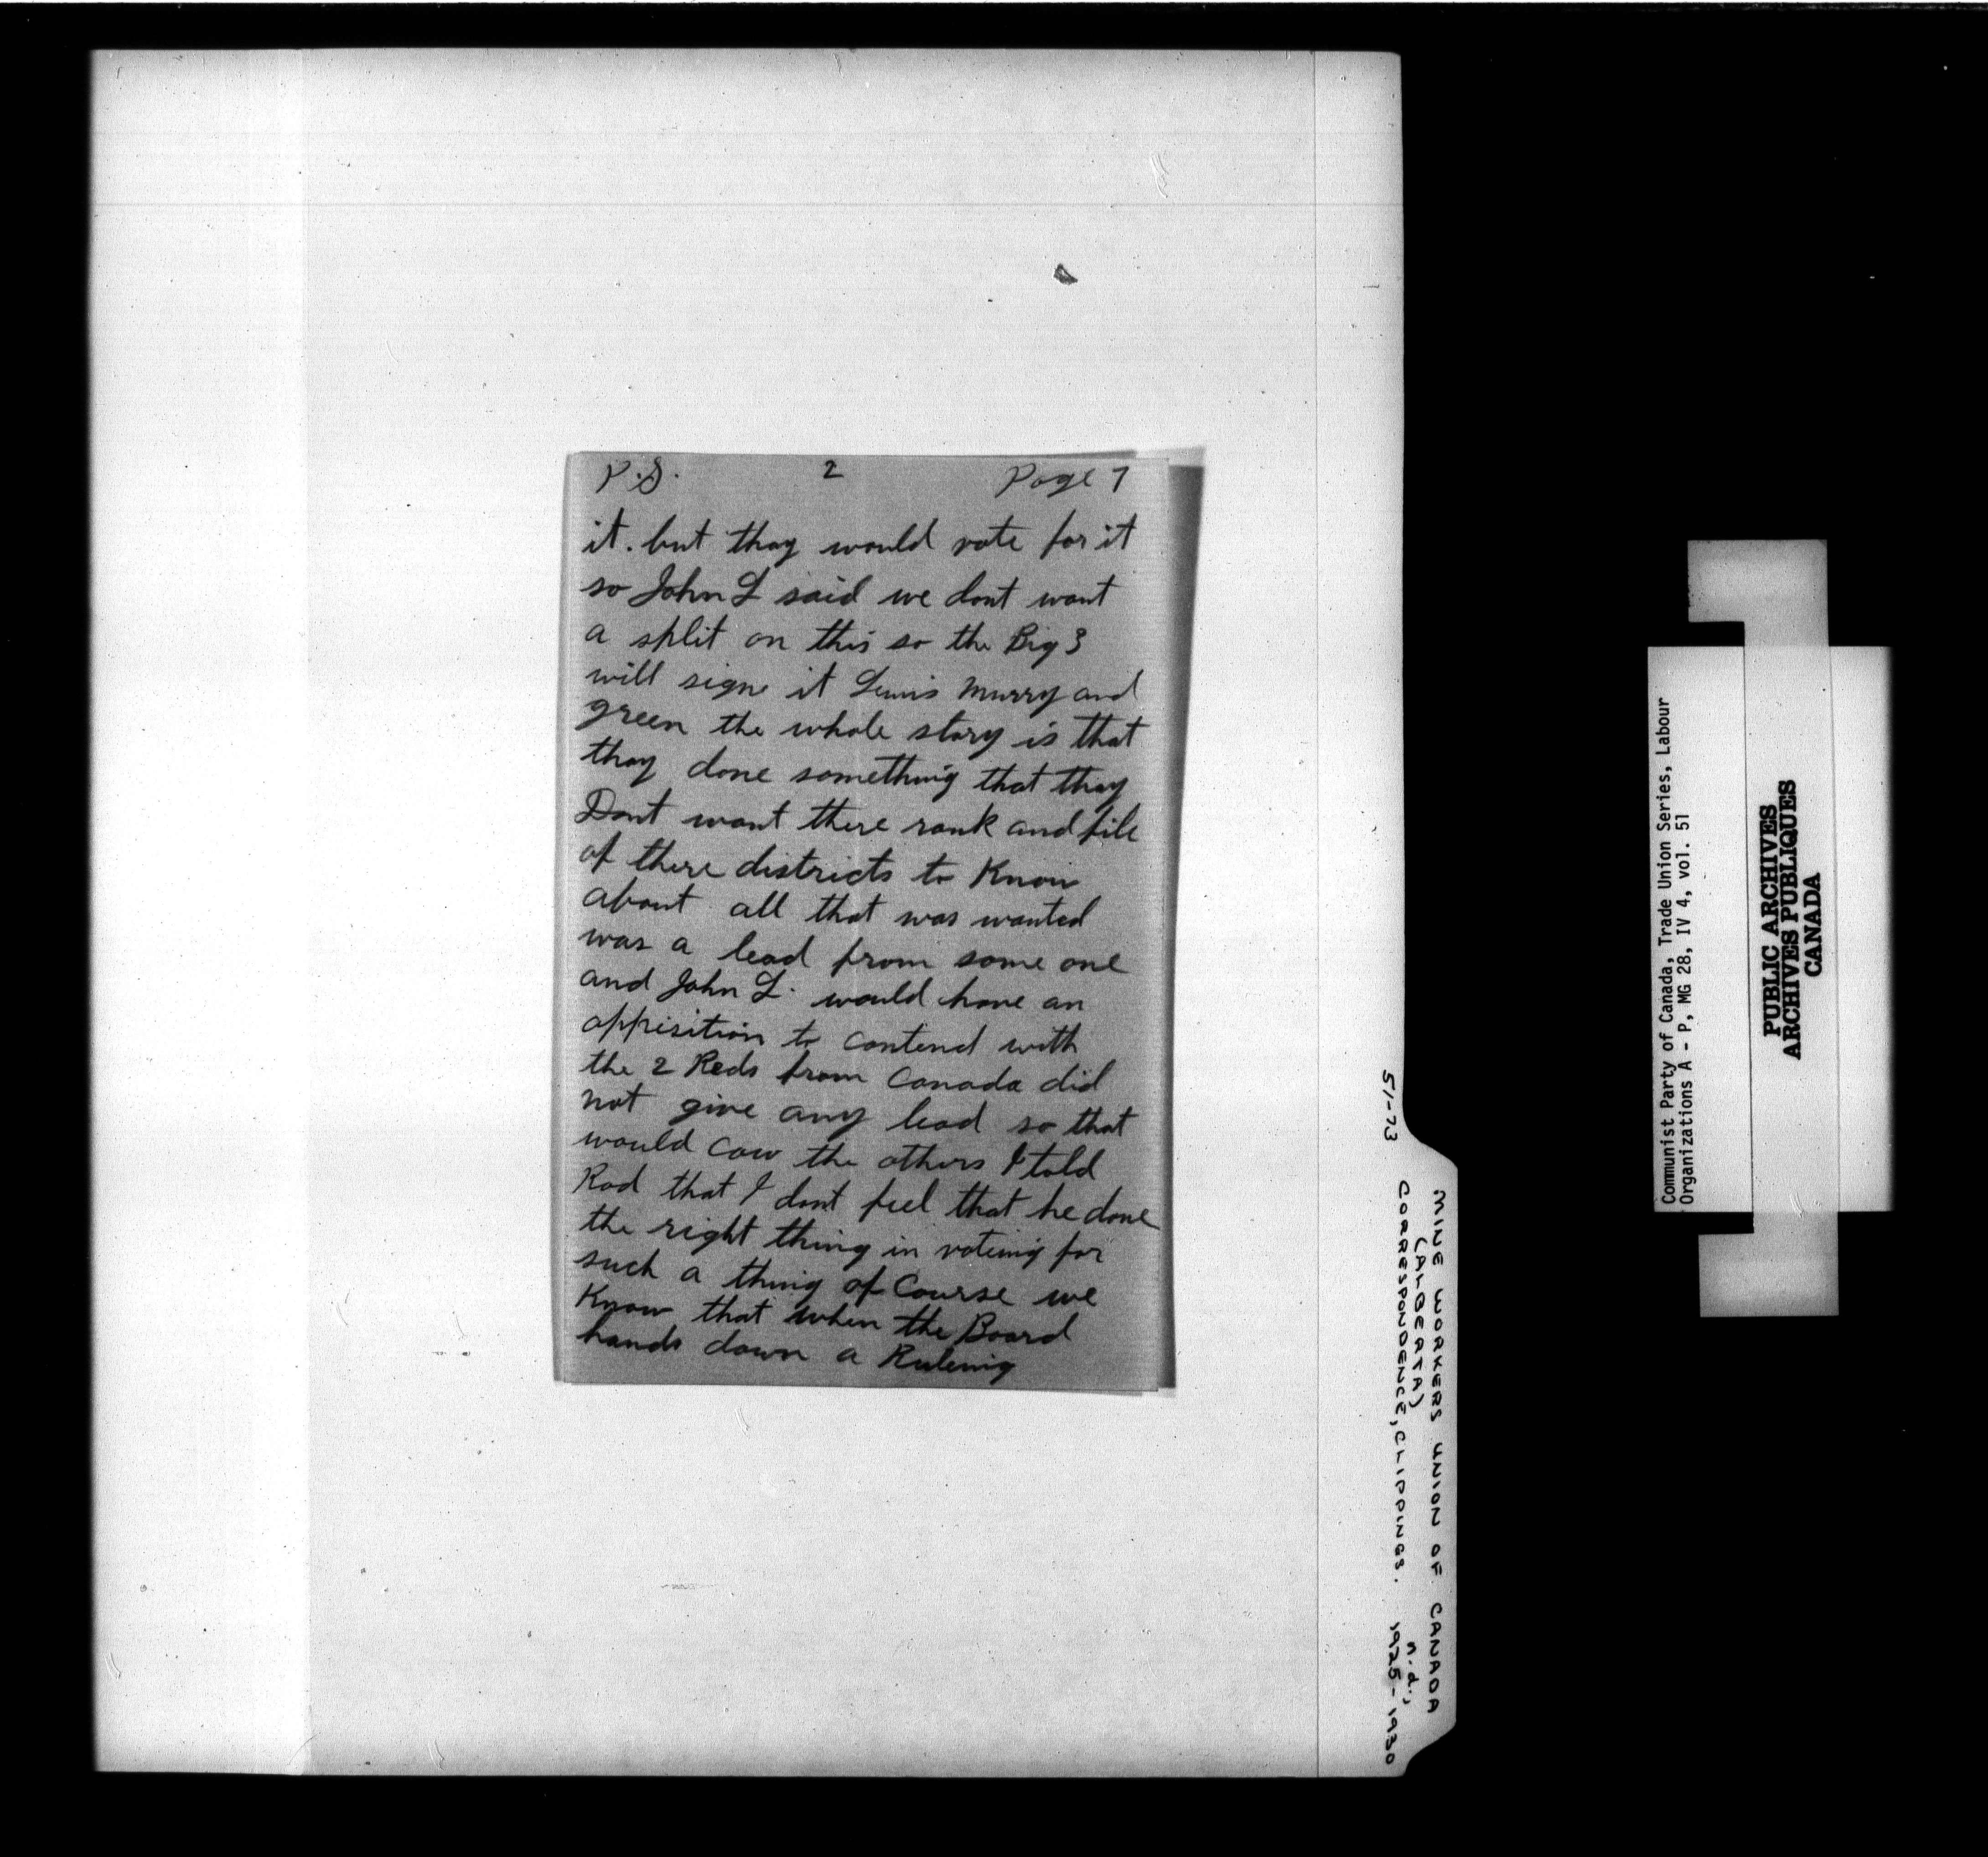 P.S. 2 Page 7
it. but thay would vote for it
so John L said we dont want
a split on this so the Big 3
will signe it Lewis Murry and
green the whole story is that
thay done something that thay
Dont want there rank and file
of there districts to Know
about all that was wanted
was a lead from some one
and John L. would have an
oppisition to contend with
the 2 Reds from Canada did
not give any lead so that
would cow the others I told
Rod that I dont feel that he done
the right thing in voteing for
such a thing of Course we
Know that when the Board
hands down a Ruleing
51-73
MINE WORKERS UNION OF CANADA
(ALBERTA) n.d.,
CORRESPONDENCE, CLIPPINGS. 1925-1930
Communist Party of Canada, Trade Union Series, Labour
Organizations A - P, MG 28, IV 4, vol. 51
PUBLIC ARCHIVES
ARCHIVES PUBLIQUES
CANADA